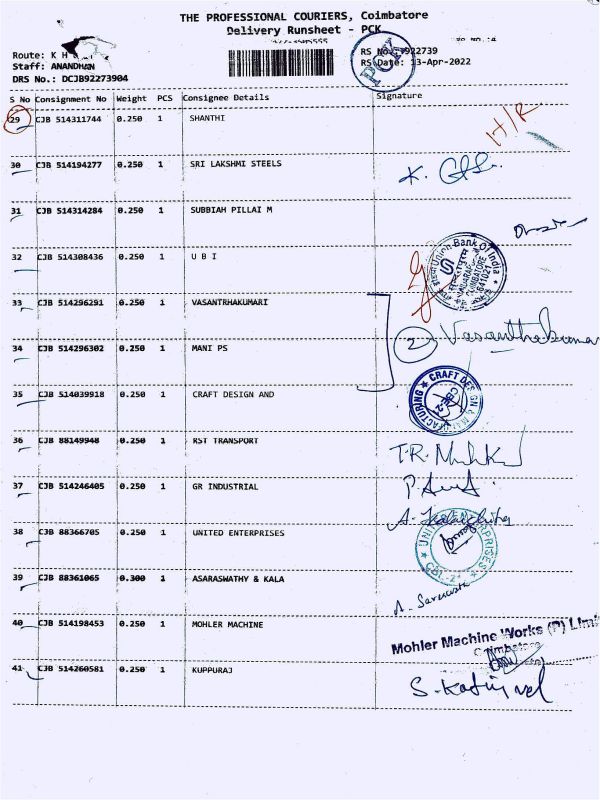 THE PROFESSIONAL COURIERS, Coimbatore
Delivery Runsheet - PCK
Route: K H
RS No.: 922739
Staff: ANANDHAN
RS Date: 13-Apr-2022
DRS No.: DCJB92273904
PCK
S No Consignment No Weight PCS Consignee Details Signature
29 CJB 514311744 0.250 1 SHANTHI
30 CJB 514194277 0.250 1 SRI LAKSHMI STEELS K.
31 CJB 514314284 0.250 1 SUBBIAH PILLAI M
32 CJB 514308436 0.250 1 U B I
Union Bank Of India
COIMBATORE
641021
33 CJB 514296291 0.250 1 VASANTRHAKUMARI
2 Vasanthakumar
34 CJB 514296302 0.250 1 MANI PS
35 CJB 514039918 0.250 1 CRAFT DESIGN AND
CRAFT DESIGN & MANUFACTURING
36 CJB 88149948 0.250 1 RST TRANSPORT
37 CJB 514246405 0.250 1 GR INDUSTRIAL
38 CJB 88366705 0.250 1 UNITED ENTERPRISES
UNITED ENTERPRISES
CBE-21
39 CJB 88361065 0.300 1 ASARASWATHY & KALA
40 CJB 514198453 0.250 1 MOHLER MACHINE
Mohler Machine Works (P) Limi
Coimbatore
41 CJB 514260581 0.250 1 KUPPURAJ